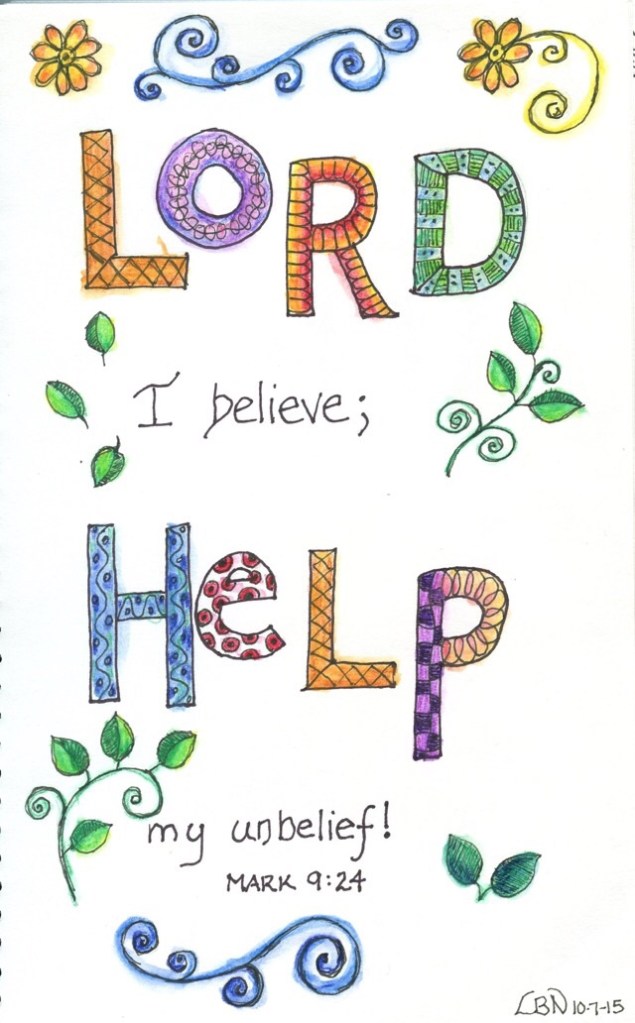 LORD
I believe;
HeLP
my unbelief!
MARK 9:24
LBN 10-7-15